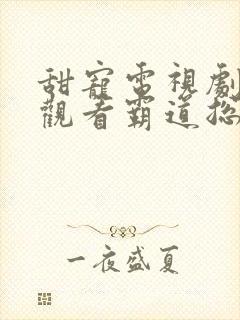 甜寵電視劇
觀看霸道総
一夜盛夏